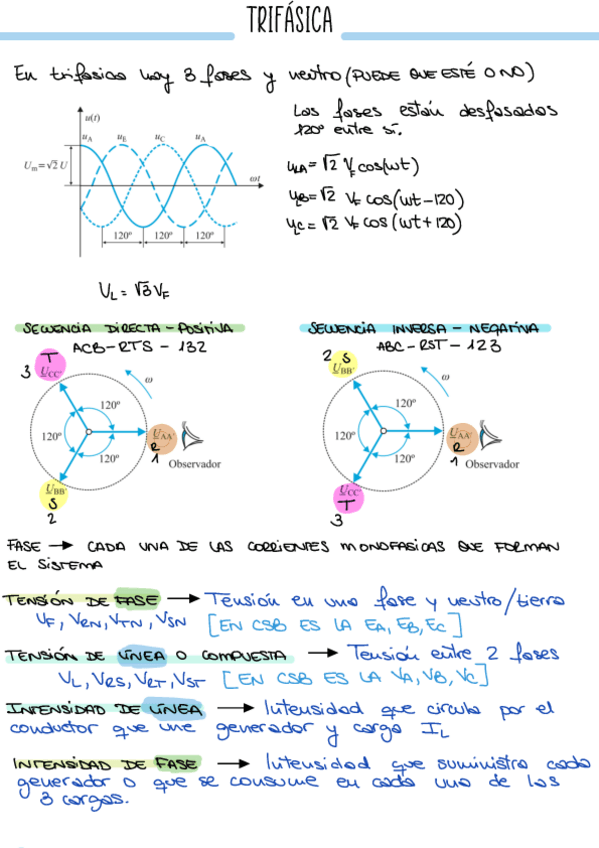 TRIFÁSICA
En trifásica hay 3 fases y neutro (PUEDE QUE ESTÉ O NO)
Las fases están desfasadas
120º entre sí.
u(t)
uA uB uC uA
Um = √2 U
ωt
120º 120º 120º
uA = √2 VF cos(ωt)
uB = √2 VF cos(ωt - 120)
uC = √2 VF cos(ωt + 120)
UL = √3 VF
SECUENCIA DIRECTA - POSITIVA
ACB - RTS - 132
T
3 UCC'
ω
120º
120º
120º
UAA'
R
1
Observador
UBB'
S
2
SECUENCIA INVERSA - NEGATIVA
ABC - RST - 123
2 S
UBB'
ω
120º
120º
120º
UAA'
R
1 Observador
UCC'
T
3
FASE → CADA UNA DE LAS CORRIENTES MONOFASICAS QUE FORMAN
EL SISTEMA
TENSIÓN DE FASE → Tensión en una fase y neutro/tierra
VF, VRN, VTN, VSN [EN CSB ES LA EA, EB, EC]
TENSIÓN DE LÍNEA O COMPUESTA → Tensión entre 2 fases
VL, VRS, VRT, VST [EN CSB ES LA VA, VB, VC]
INTENSIDAD DE LÍNEA → Intensidad que circula por el
conductor que une generador y carga IL
INTENSIDAD DE FASE → Intensidad que suministra cada
generador o que se consume en cada una de las
3 cargas.